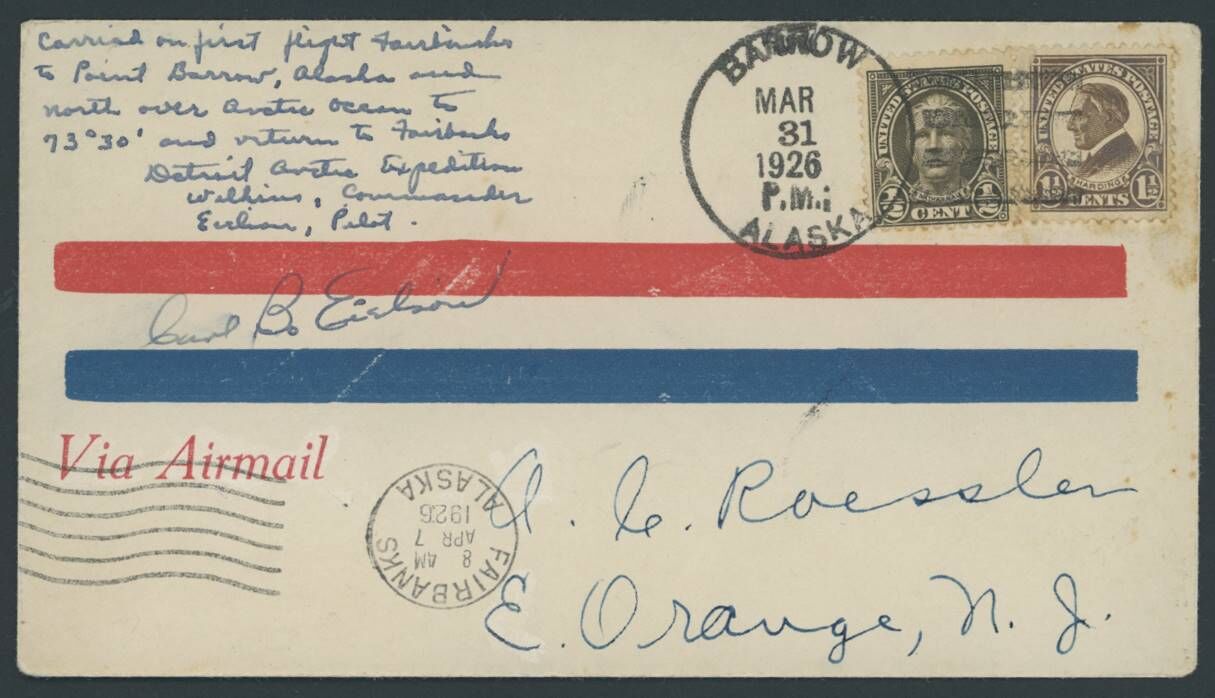 Carried on first flight Fairbanks
to Point Barrow, Alaska and
north over Arctic Ocean to
73°30' and return to Fairbanks
Detroit Arctic Expedition
Wilkins, Commander
Eielson, Pilot.
BARROW
MAR
31
1926
P.M.
ALASKA
UNITED STATES POSTAGE
½ CENT ½
UNITED STATES POSTAGE
HARDING
1½ CENTS 1½
Carl B. Eielson
Via Airmail
FAIRBANKS
8 AM
APR 7
1926
ALASKA
A. C. Roessler
E. Orange, N. J.